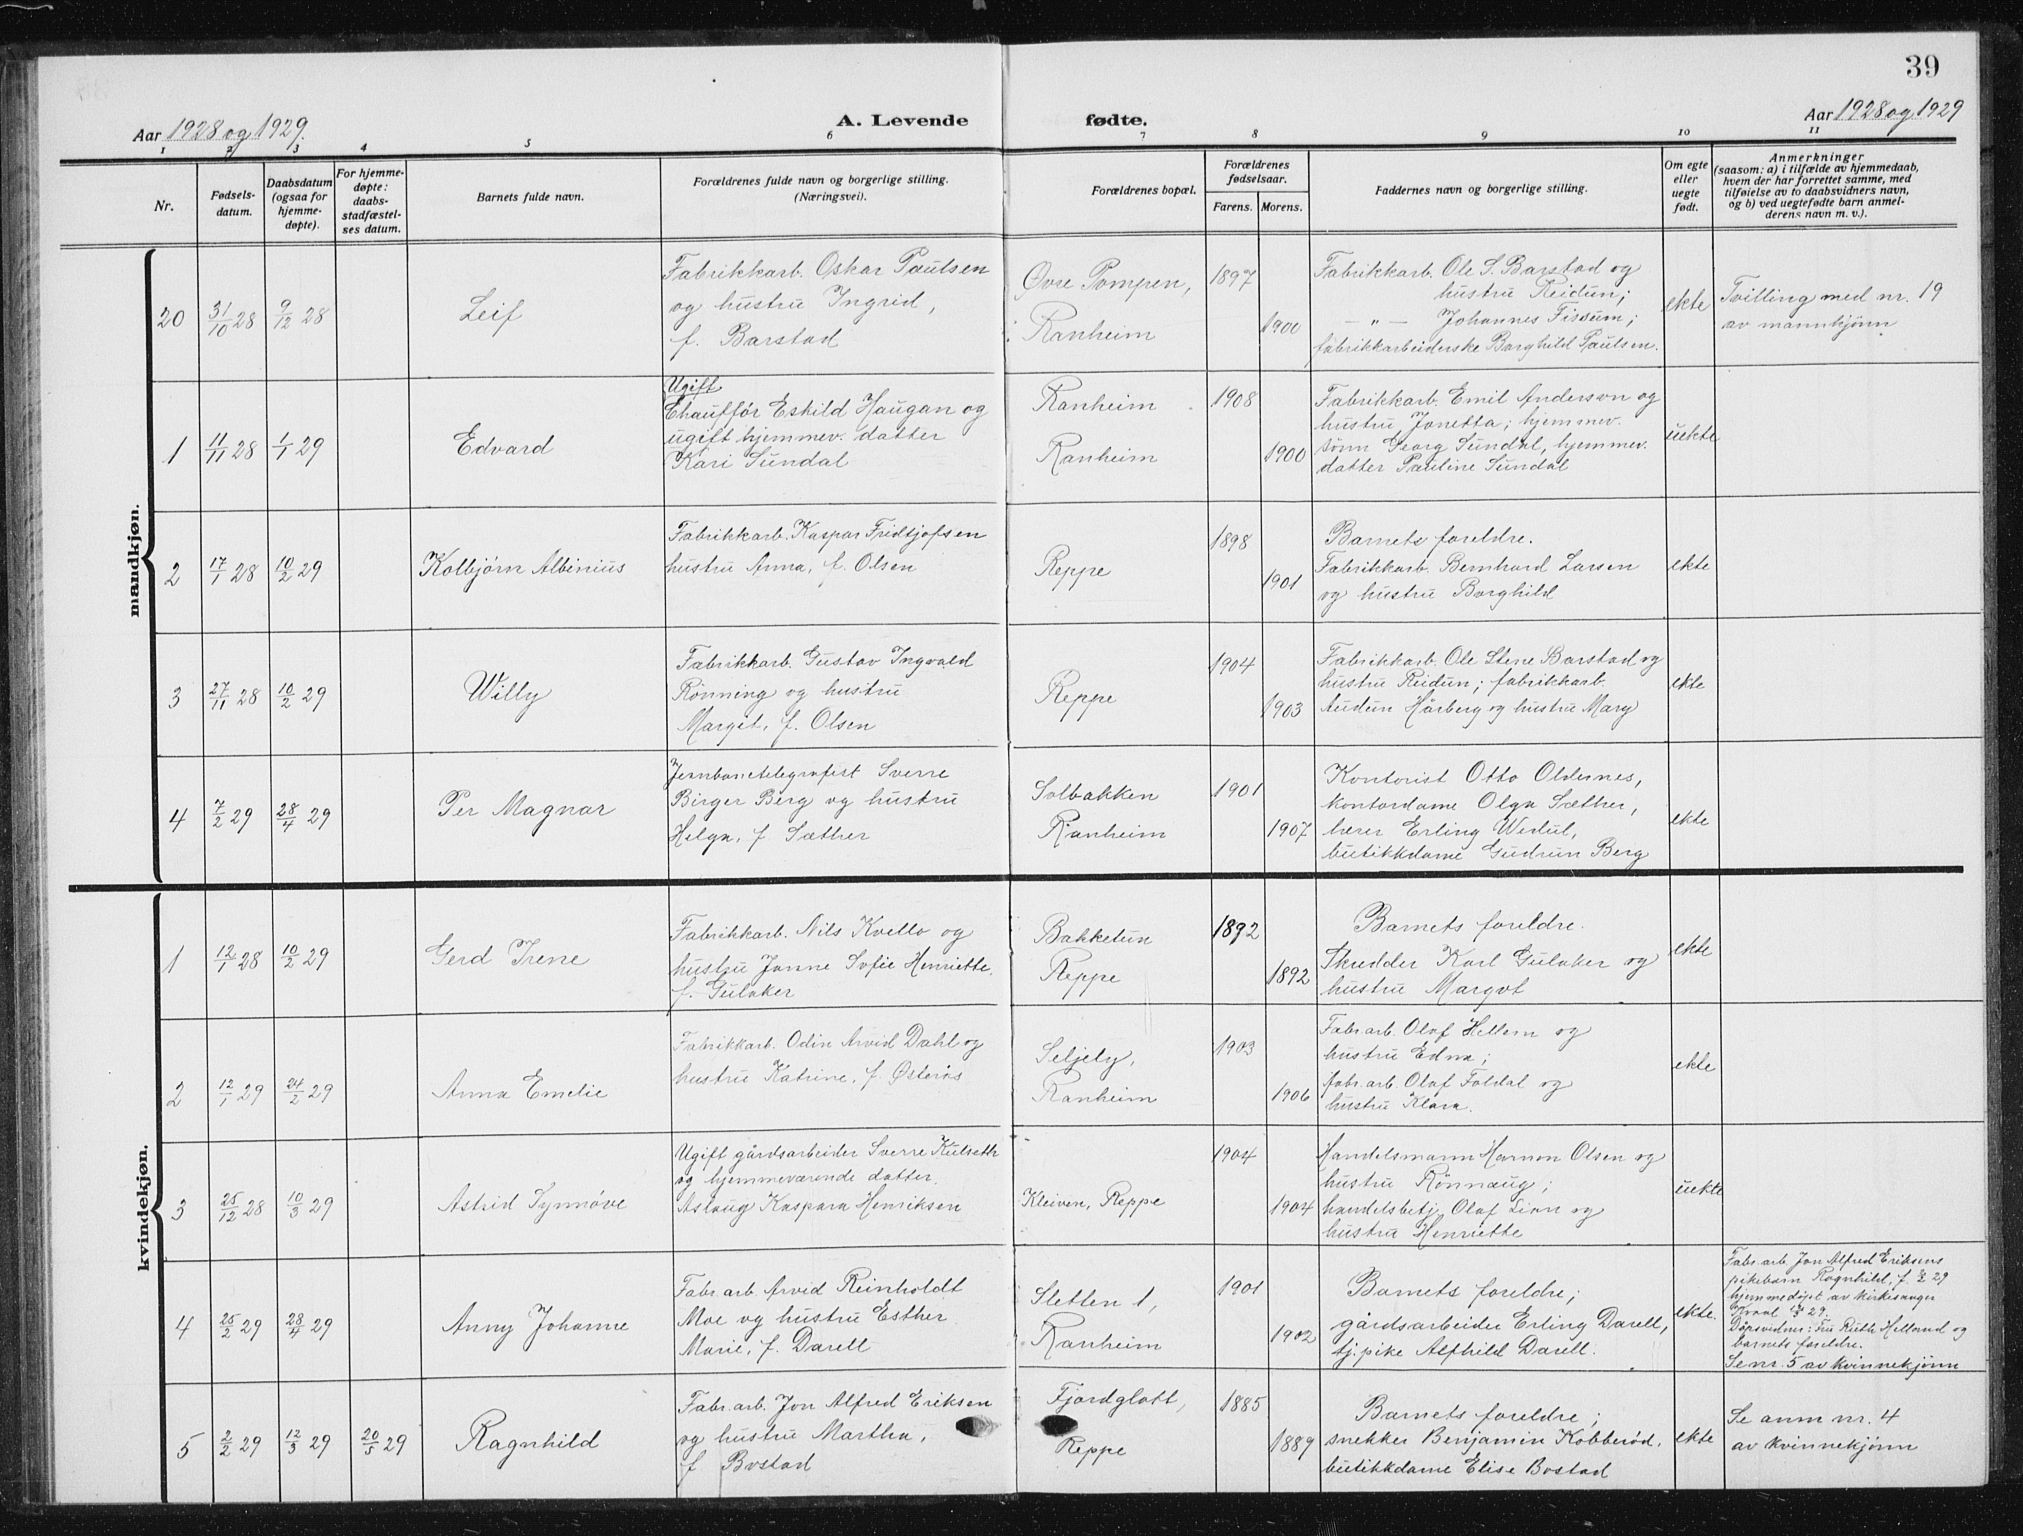 39
Aar 1928 og 1929.
A. Levende fødte.
Aar 1928 og 1929
1 2 3 4 5 6 7 8 9 10 11
Nr.
Fødsels-
datum.
Daabsdatum
(ogsaa for
hjemme-
døpte).
For hjemme-
døpte:
daabs-
stadfæstel-
ses datum.
Barnets fulde navn.
Forældrenes fulde navn og borgerlige stilling.
(Næringsvei).
Forældrenes bopæl.
Forældrenes
fødselsaar.
Farens. Morens.
Faddernes navn og borgerlige stilling.
Om egte
eller
uegte
født.
Anmerkninger
(saasom: a) i tilfælde av hjemmedaab,
hvem der har forrettet samme, med
tilføielse av to daabsvidners navn,
og b) ved uegtefødte barn anmel-
derens navn m. v.).
mandkjøn.
20
31/10 28
9/12 28
Leif
Fabrikkarb. Oskar Paulsen
og hustru Ingrid,
f. Barstad
Øvre Pompen,
Ranheim
1897
1900
Fabrikkarb. Ole S. Barstad og
hustru Reidun;
— „ — Johannes Fissum;
fabrikkarbeiderske Borghild Paulsen.
ekte
Tvilling med nr. 19
av mannkjønn
1
11/11 28
1/1 29
Edvard
Ugift
Chauffør Eskild Haugan og
ugift hjemmev. datter
Kari Sundal
Ranheim
Ranheim
1908
1900
Fabrikkarb. Emil Anderson og
hustru Jonetta; hjemmev.
sønn Georg Sundal, hjemmev.
datter Pauline Sundal
uekte
2
17/1 28
10/2 29
Kolbjørn Albinius
Fabrikkarb. Kaspar Fridtjofsen
hustru Anna, f. Olsen
Reppe
1898
1901
Barnets foreldre.
Fabrikkarb. Bernhard Larsen
og hustru Borghild
ekte
3
27/11 28
10/2 29
Willy
Fabrikkarb. Gustav Ingvald
Rønning og hustru
Margit, f. Olsen
Reppe
1904
1903
Fabrikkarb. Ole Stene Barstad og
hustru Reidun; fabrikkarb.
Audun Hårberg og hustru Mary
ekte
4
7/2 29
28/4 29
Per Magnar
Jernbanetelegrafist Sverre
Birger Berg og hustru
Helga, f. Sæther
Solbakken
Ranheim
1901
1907
Kontorist Otto Oldernes,
kontordame Olga Sæther,
lærer Erling Wedul,
butikkdame Gudrun Berg
ekte
kvindekjøn.
1
12/1 28
10/2 29
Gerd Irene
Fabrikkarb. Nils Kvello og
hustru Janne Sofie Henriette
f. Gulaker
Bakketun
Reppe
1892
1892
Barnets foreldre.
Skredder Karl Gulaker og
hustru Margot
ekte
2
12/1 29
24/2 29
Anna Emelie
Fabrikkarb. Odin Arvid Dahl og
hustru Katrine, f. Østerås
Seljely,
Ranheim
1903
1906
Fabr.arb. Olaf Hellem og
hustru Edna;
fabr.arb. Olaf Foldal og
hustru Klara.
ekte
3
25/12 28
10/3 29
Astrid Synnøve
Ugift gårdsarbeider Sverre Kulseth
og hjemmeværende datter
Aslaug Kaspara Henriksen
Kleiven, Reppe
1904
1904
Handelsmann Harmon Olsen og
hustru Rønnaug;
handelsbetj. Olaf Lian og
hustru Henriette
uekte
4
25/2 29
28/4 29
Anny Johanne
Fabr.arb. Arvid Reinholdt
Moe og hustru Esther
Marie, f. Darell
Sletten 1,
Ranheim
1901
1902
Barnets foreldre;
gårdsarbeider Erling Darell,
tj.pike Alfhild Darell.
ekte.
Fabr.arb. Jon Alfred Eriksens
pikebarn Ragnhild, f. 2/2 29
hjemmedøpt av kirkesanger
29.
Dåpsvidner: Fru Ruth Helland og
barnets foreldre.
Se nr. 5 av kvinnekjønn
5
2/2 29
12/3 29
20/5 29
Ragnhild
Fabr.arb. Jon Alfred Eriksen
og hustru Martha,
f. Bostad
Fjordglott,
Reppe
1885
1889
Barnets foreldre;
snekker Benjamin Kobberød,
butikkdame Elise Bostad
ekte
Se anm nr. 4
av kvinnekjønn